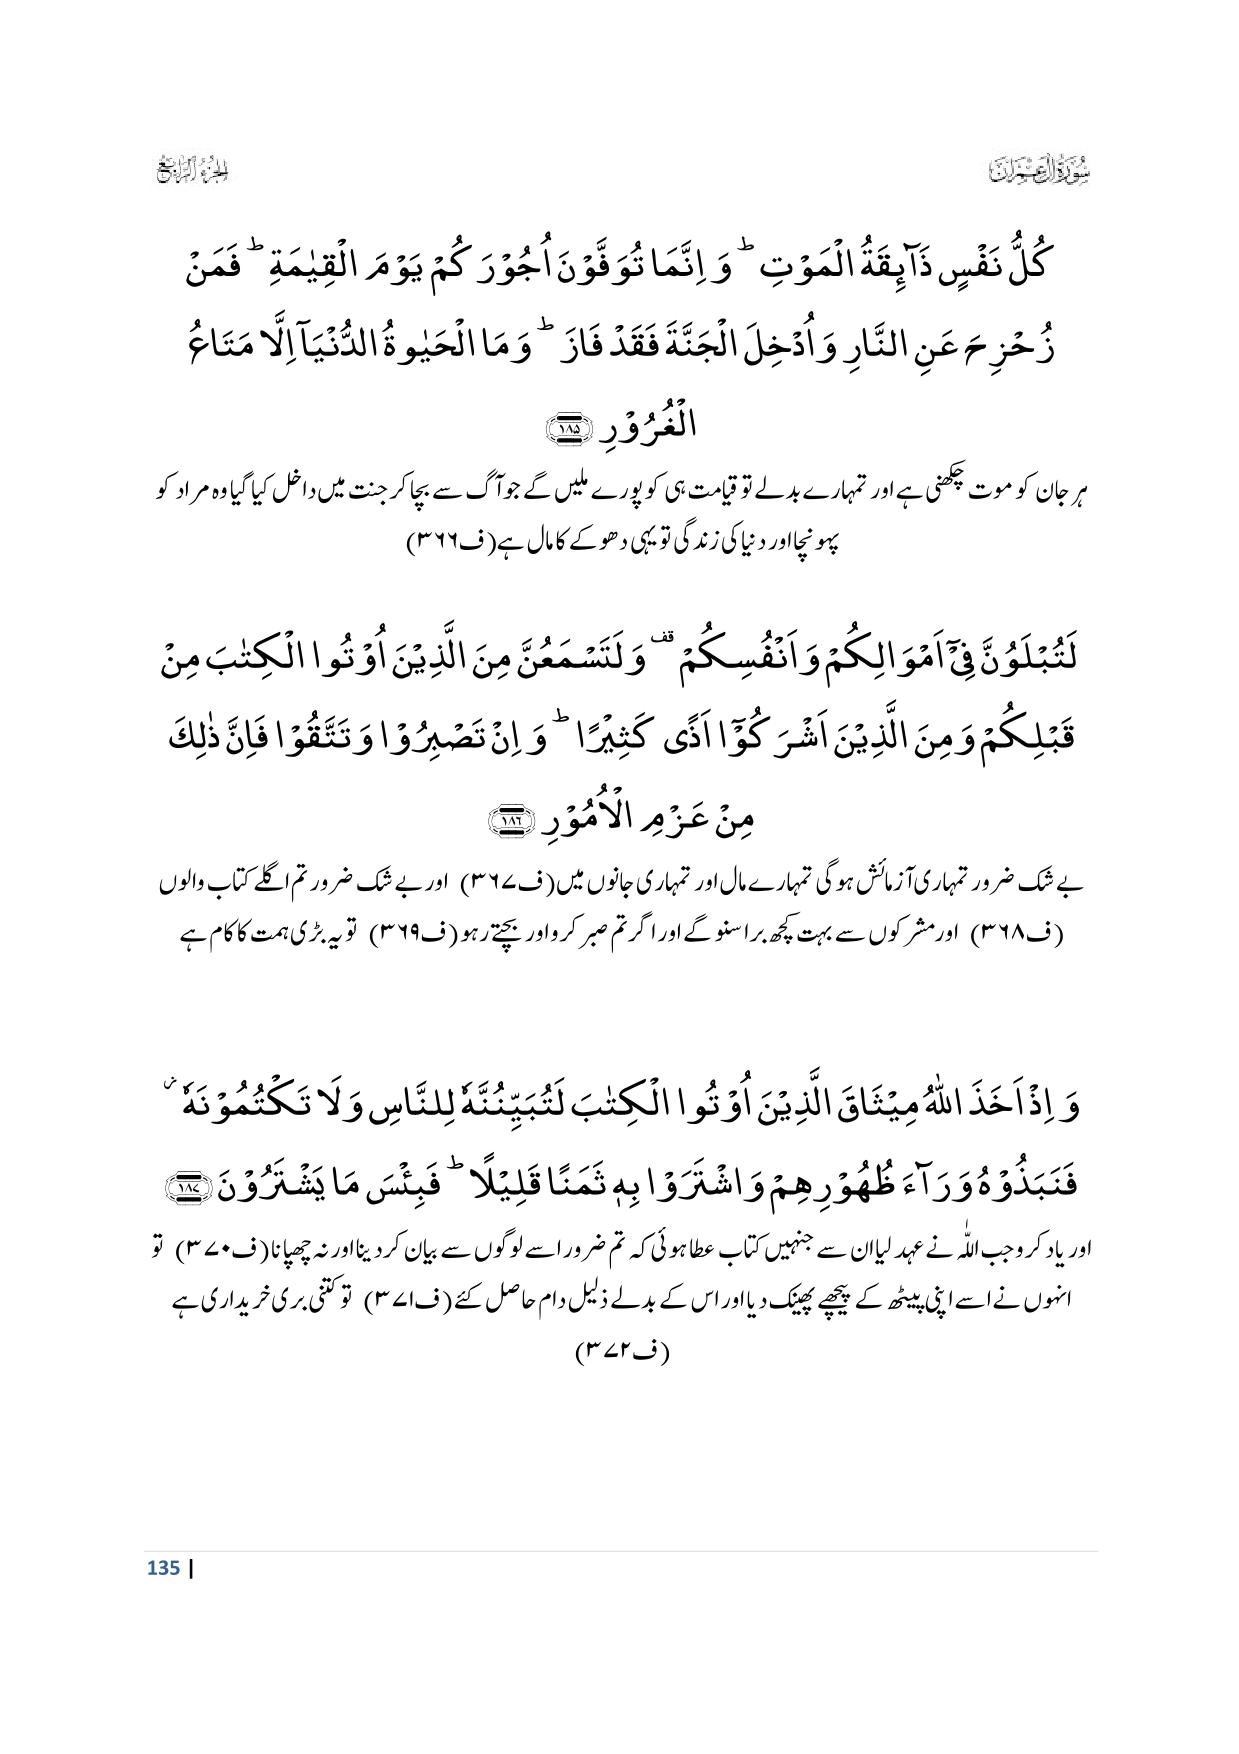 سُوۡرَةُ اٰلِ عِمۡرٰن
الجزء الرابع
كُلُّ نَفۡسٍ ذَآئِقَةُ الۡمَوۡتِ ؕ وَ اِنَّمَا تُوَفَّوۡنَ اُجُوۡرَكُمۡ يَوۡمَ الۡقِيٰمَةِ ؕ فَمَنۡ
زُحۡزِحَ عَنِ النَّارِ وَ اُدۡخِلَ الۡجَنَّةَ فَقَدۡ فَازَ ؕ وَ مَا الۡحَيٰوةُ الدُّنۡيَاۤ اِلَّا مَتَاعُ
الۡغُرُوۡرِ ﴿۱۸۵﴾
ہر جان کو موت چکھنی ہے اور تمہارے بدلے تو قیامت ہی کو پورے ملیں گے جو آگ سے بچا کر جنت میں داخل کیا گیا وہ مراد کو
پہونچا اور دنیا کی زندگی تو یہی دھوکے کا مال ہے (ف۳۶۶)
لَتُبۡلَوُنَّ فِىۡۤ اَمۡوَالِكُمۡ وَ اَنۡفُسِكُمۡ ۟ وَ لَتَسۡمَعُنَّ مِنَ الَّذِيۡنَ اُوۡتُوا الۡكِتٰبَ مِنۡ
قَبۡلِكُمۡ وَ مِنَ الَّذِيۡنَ اَشۡرَكُوۡۤا اَذًى كَثِيۡرًا ؕ وَ اِنۡ تَصۡبِرُوۡا وَ تَتَّقُوۡا فَاِنَّ ذٰلِكَ
مِنۡ عَزۡمِ الۡاُمُوۡرِ ﴿۱۸۶﴾
بے شک ضرور تمہاری آزمائش ہوگی تمہارے مال اور تمہاری جانوں میں (ف۳۶۷) اور بے شک ضرور تم اگلے کتاب والوں
(ف۳۶۸) اور مشرکوں سے بہت کچھ برا سنو گے اور اگر تم صبر کرو اور بچتے رہو (ف۳۶۹) تو یہ بڑی ہمت کا کام ہے
وَ اِذۡ اَخَذَ اللّٰهُ مِيۡثَاقَ الَّذِيۡنَ اُوۡتُوا الۡكِتٰبَ لَتُبَيِّنُنَّهٗ لِلنَّاسِ وَ لَا تَكۡتُمُوۡنَهٗ ۫
فَنَبَذُوۡهُ وَرَآءَ ظُهُوۡرِهِمۡ وَ اشۡتَرَوۡا بِهٖ ثَمَنًا قَلِيۡلًا ؕ فَبِئۡسَ مَا يَشۡتَرُوۡنَ ﴿۱۸۷﴾
اور یاد کرو جب اللہ نے عہد لیا ان سے جنہیں کتاب عطا ہوئی کہ تم ضرور اسے لوگوں سے بیان کر دینا اور نہ چھپانا (ف۳۷۰) تو
انہوں نے اسے اپنی پیٹھ کے پیچھے پھینک دیا اور اس کے بدلے ذلیل دام حاصل کئے (ف۳۷۱) تو کتنی بری خریداری ہے
(ف۳۷۲)
135 |